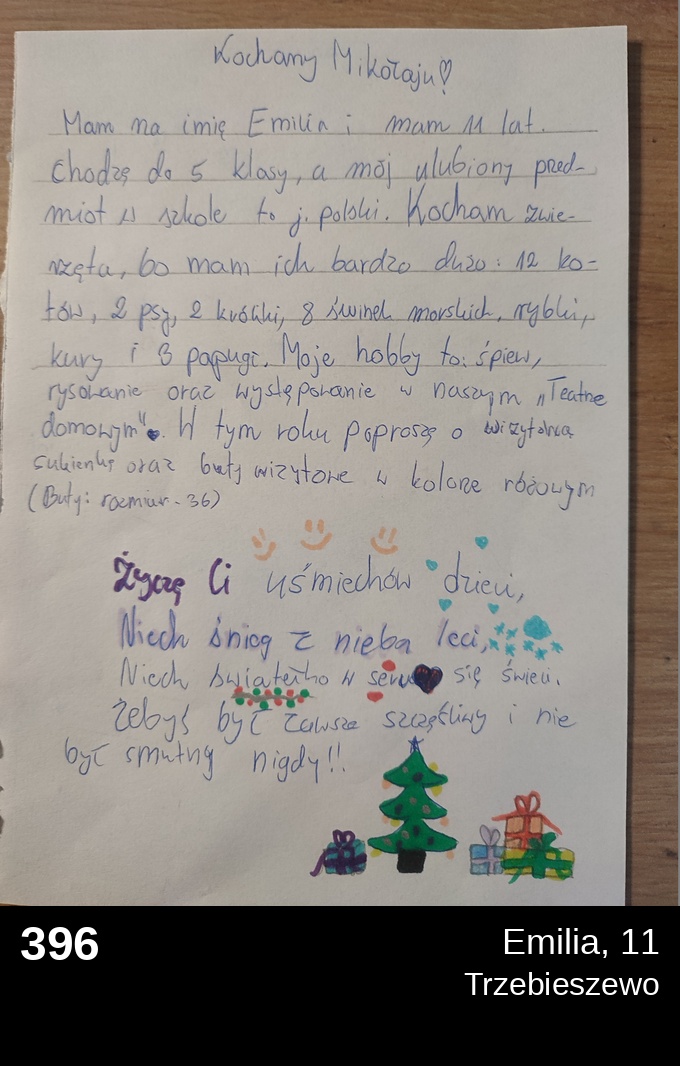 Kochany Mikołaju♡
Mam na imię Emilia i mam 11 lat.
Chodzę do 5 klasy, a mój ulubiony przed-
miot w szkole to j. polski. Kocham zwie-
rzęta, bo mam ich bardzo dużo: 12 ko-
tów, 2 psy, 2 króliki, 8 świnek morskich, rybki,
kury i 3 papugi. Moje hobby to: śpiew,
rysowanie oraz występowanie w naszym „Teatrze
domowym". W tym roku poproszę o wizytową
sukienkę oraz buty wizytowe w kolorze różowym
(Buty: rozmiar - 36)
Życzę Ci uśmiechów dzieci,
Niech śnieg z nieba leci,
Niech światełko w sercu się świeci.
Żebyś był zawsze szczęśliwy i nie
był smutny nigdy!!
396
Emilia, 11
Trzebieszewo